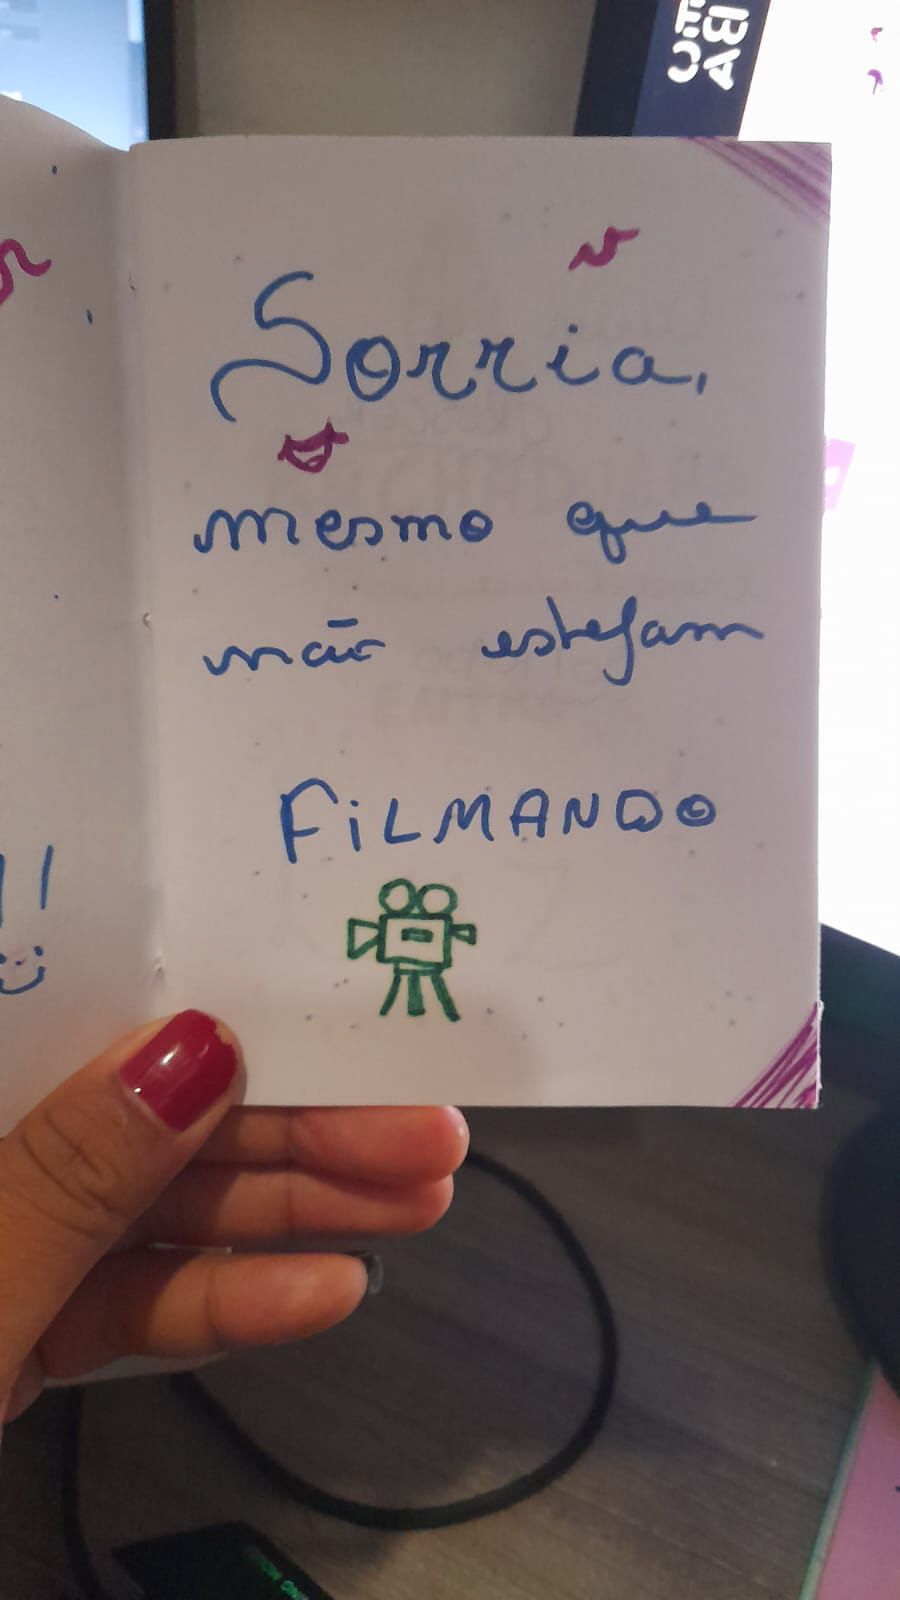 Sorria,
mesmo que
não estejam
FiLMANDO
!!